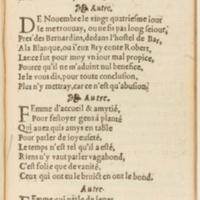 Autre.
DE Nouembre le vingt quatriesme iour
Ie metrouuay, ou ne fis pas long seiour,
Pres des Bernardins, dedans l'hostel de Bar,
Ala Blanque, ou i'eux Bry conte Robert,
Lance fut pour moy vn iour mal propice,
Pource qu'il ne m'aduint nul benefice,
Ie le vous dis, pour toute conclusion,
Plus n'y mettray, car ce n'est qu'abusion,
Autre.
FEmme d'accueil & amytié,
Pour festoyer gents à planté
Qui auez quis amys en table
Pour parler de ioyeuseté.
Le temps n'est tel qu'il a esté,
Riens n'y vaut parler vagabond,
C'est folie que de vanité,
Ceux qui ont eu le bruict en ont le bond.
Autre.